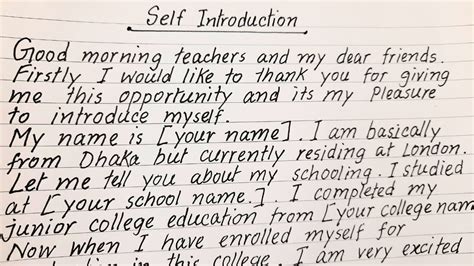 Self Introduction
Good morning teachers and my dear friends.
Firstly I would like to thank you for giving
me this opportunity and its my Pleasure
to introduce myself.
My name is [your name]. I am basically
from Dhaka but currently residing at London.
Let me tell you about my schooling. I studied
at [your school name.]. I completed my
junior college education from [your college name
Now when I have enrolled myself for
in this college. I am very excited